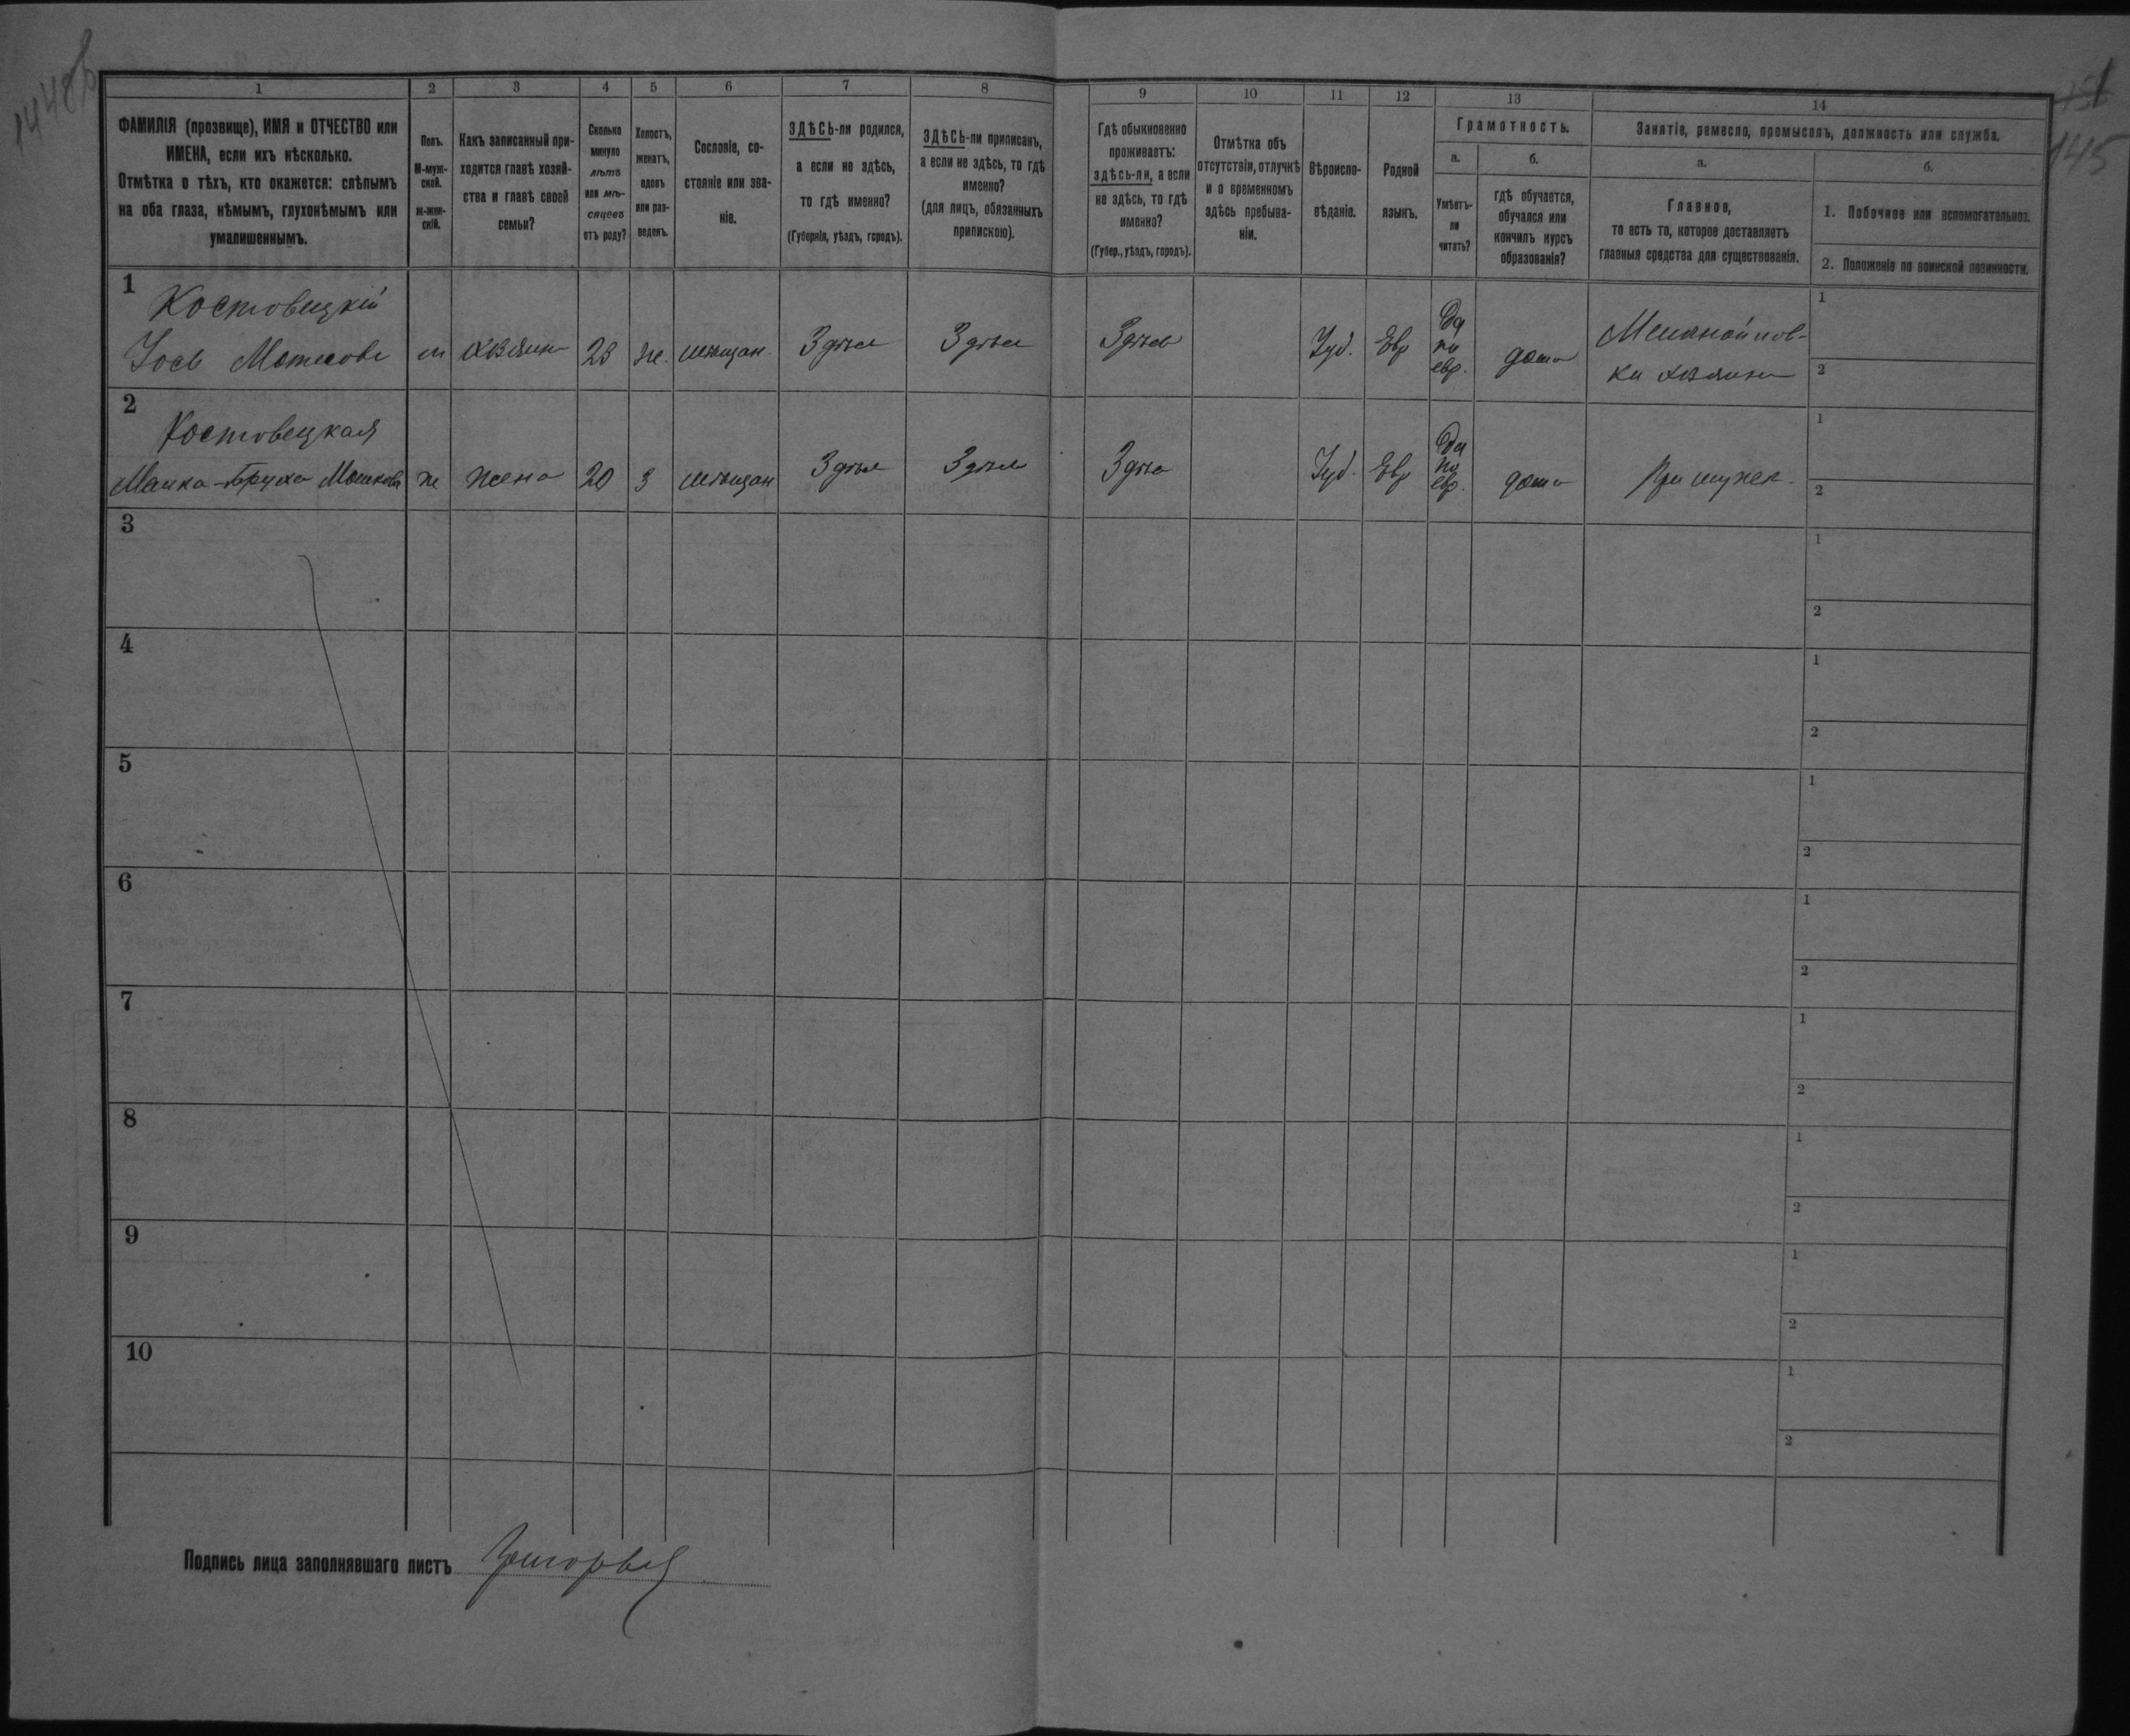 1 2 3 4 5 6 7 8
ФАМИЛІЯ (прозвище), ИМЯ и ОТЧЕСТВО или
ИМЕНА, если ихъ нѣсколько.
Отмѣтка о тѣхъ, кто окажется: слѣпымъ
на оба глаза, нѣмымъ, глухонѣмымъ или
умалишеннымъ.
Полъ.
М-муж-
ской.
ж-жен-
скій.
Какъ записанный при-
ходится главѣ хозяй-
ства и главѣ своей
семьи?
Сколько
минуло
лѣтъ
или мѣ-
сяцевъ
отъ роду?
Холостъ,
женатъ,
вдовъ
или раз-
веденъ.
Сословіе, со-
стояніе или зва-
ніе.
ЗДѢСЬ-ли родился,
а если не здѣсь,
то гдѣ именно?
(Губернія, уѣздъ, городъ).
ЗДѢСЬ-ли приписанъ,
а если не здѣсь, то гдѣ
именно?
(для лицъ, обязанныхъ
припискою).
9 10 11 12 13 14
Гдѣ обыкновенно
проживаетъ:
здѣсь-ли, а если
не здѣсь, то гдѣ
именно?
(Губер., уѣздъ, городъ).
Отмѣтка объ
отсутствіи, отлучкѣ
и о временномъ
здѣсь пребыва-
ніи.
Вѣроиспо-
вѣданіе.
Родной
языкъ.
Грамотность.
а.
Умѣетъ-
ли
читать?
б.
гдѣ обучается,
обучался или
кончилъ курсъ
образованія?
Занятіе, ремесло, промыселъ, должность или служба.
а.
Главное,
то есть то, которое доставляетъ
главныя средства для существованія.
б.
1. Побочное или вспомогательное.
2. Положеніе по воинской повинности.
1
Костовецкій
м 23 же. мѣщан
Здѣсь Здѣсь Здѣсь Іуд. Евр
Да
по
евр.
дома
1
2
2
Костовецкая
ж жена 20 з мѣщан Здѣсь Здѣсь Здѣсь Іуд. Евр
Да
по
евр.
дома При мужѣ
1
2
3
1
2
4
1
2
5
1
2
6
1
2
7
1
2
8
1
2
9
1
2
10
1
2
Подпись лица заполнявшаго листъ
145